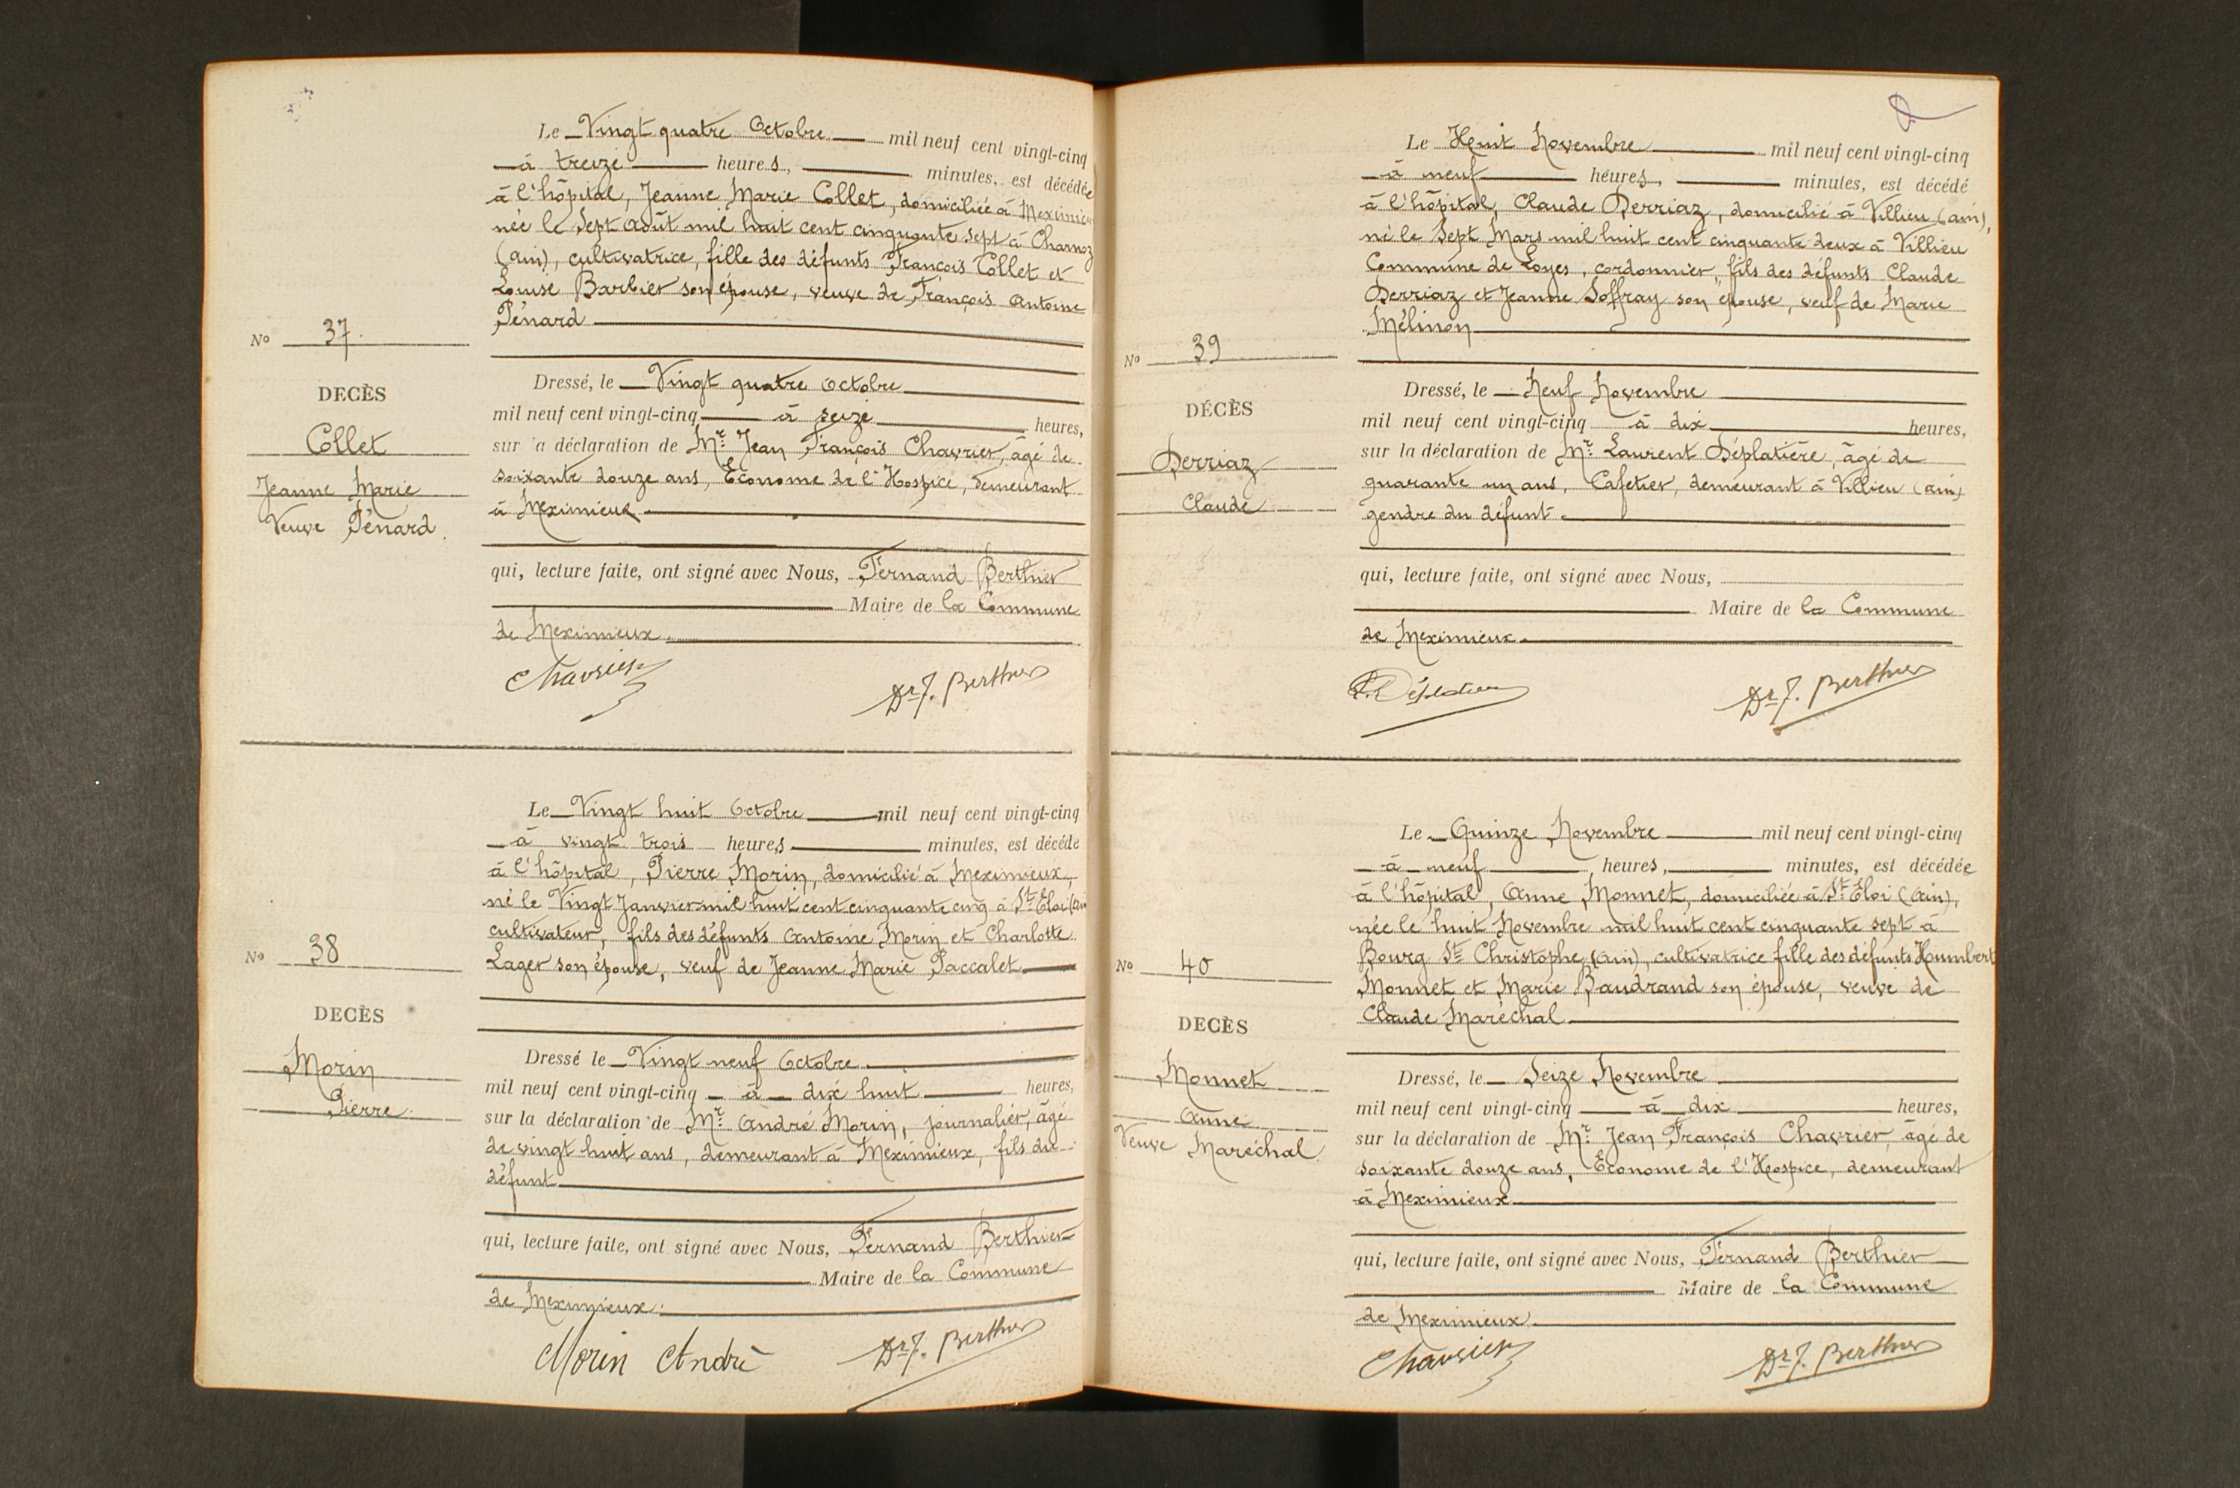 Le Vingt quatre Octobre mil neuf cent vingt-cinq
à treize heures, minutes, est décédée
à l'hôpital, Jeanne Marie Collet, domiciliée à Meximieux
née le Sept Août mil huit cent cinquante sept à Charnoz
(ain), cultivatrice, fille des défunts François Collet et
Louise Barbier son épouse, veuve de François Antoine
Pénard
No 37.
DECÈS
Collet
Jeanne Marie
Veuve Pénard.
Dressé, le Vingt quatre Octobre
mil neuf cent vingt-cinq à seize heures,
sur la déclaration de Mr. Jean François Chavrier, âgé de
soixante douze ans, Econome de l'Hospice, demeurant
à Meximieux
qui, lecture faite, ont signé avec Nous, Fernand Berthier
Maire de la Commune
de Meximieux.
Chavrier
Dr F. Berthier
Le Vingt huit Octobre mil neuf cent vingt-cinq
à vingt trois heures minutes, est décédé
à l'hôpital, Pierre Morin, domicilié à Meximieux,
né le Vingt Janvier mil huit cent cinquante cinq à St. Eloi (ain
cultivateur, fils des défunts Antoine Morin et Charlotte
Lager son épouse, veuf de Jeanne Marie Paccalet
No 38
DECÈS
Morin
Pierre.
Dressé le Vingt neuf Octobre
mil neuf cent vingt-cinq à dix huit heures,
sur la déclaration de Mr. André Morin, journalier, âgé
de vingt huit ans, demeurant à Meximieux, fils du
défunt
qui, lecture faite, ont signé avec Nous, Fernand Berthier
Maire de la Commune
de Meximieux.
Morin André
Dr F. Berthier
Le Huit Novembre mil neuf cent vingt-cinq
à neuf heures, minutes, est décédé
à l'hôpital, Claude Derriaz, domicilié à Villieu (ain),
né le Sept Mars mil huit cent cinquante deux à Villieu
Commune de Loyes, cordonnier, fils des défunts Claude
Derriaz et Jeanne Soffray son épouse, veuf de Marie
Mélinon
No 39
DÉCÈS
Derriaz
Claude
Dressé, le Neuf Novembre
mil neuf cent vingt-cinq à dix heures,
sur la déclaration de Mr. Laurent Déplatière, âgé de
quarante un ans, Cafetier, demeurant à Villieu (ain)
gendre du défunt.
qui, lecture faite, ont signé avec Nous,
Maire de la Commune
de Meximieux.
Dr F. Berthier
Le Quinze Novembre mil neuf cent vingt-cinq
à neuf heures, minutes, est décédée
à l'hôpital, Anne Monnet, domiciliée à St. Eloi (ain),
née le huit Novembre mil huit cent cinquante sept à
Bourg St. Christophe (ain), cultivatrice fille des défunts Humbert
Monnet et Marie Baudrand son épouse, veuve de
Claude Maréchal
No 40
DECÈS
Monnet
Anne
Veuve Maréchal.
Dressé, le Seize Novembre
mil neuf cent vingt-cinq à dix heures,
sur la déclaration de Mr. Jean François Chavrier, âgé de
soixante douze ans, Econome de l'Hospice, demeurant
à Meximieux
qui, lecture faite, ont signé avec Nous, Fernand Berthier
Maire de la Commune
de Meximieux.
Chavrier
Dr F. Berthier